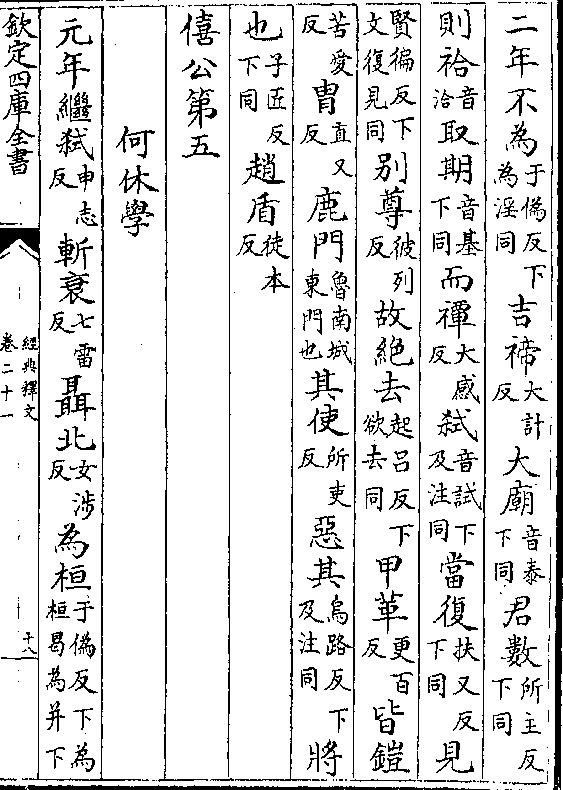 二年不為于偽反下為淫同吉禘大計反大廟音泰下同君數所主反下同
則祫音洽取期音基下同而禫大感反弑音試下及注同當復扶又反下同見
賢徧反下文復見同别尊彼列反故絶去起吕反下欲去同甲革更百反皆鎧
苦愛反胄直又反鹿門魯南城東門也其使所吏反惡其烏路反下及注同將
也子匠反下同趙盾徒本反
僖公第五
何休學
元年繼弑申志反斬衰七雷反聶北女涉反為桓于偽反下為桓曷為并下
欽定四庫全書
經典釋文
卷二十一
十八